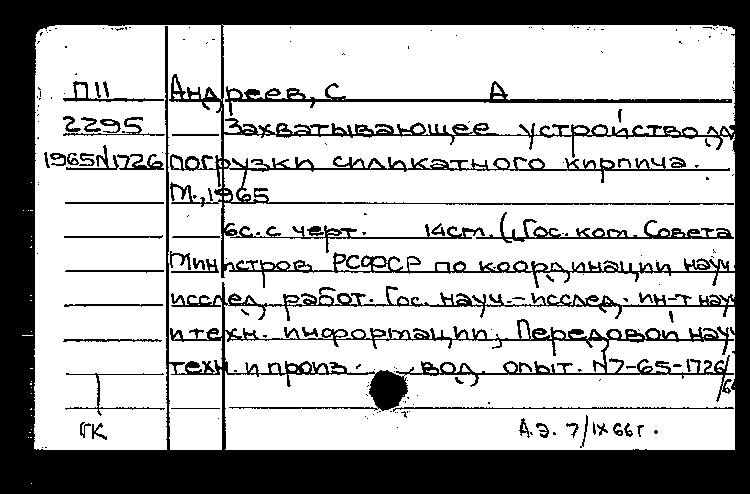 П11 Андреев, С А
2295 Захватывающее устройство для
1965N1726 погрузки силикатного кирпича.
М., 1965
6с. с черт. 14см. (Гос. ком. Совета
Министров РСФСР по координации науч.-
исслед. работ. Гос. науч.-исслед. ин-т науч.
и техн. информации, Передовой науч.
техн. и произ. вод. опыт. N7-65-1726/
66
ГК А.Э. 7/IX 66г.